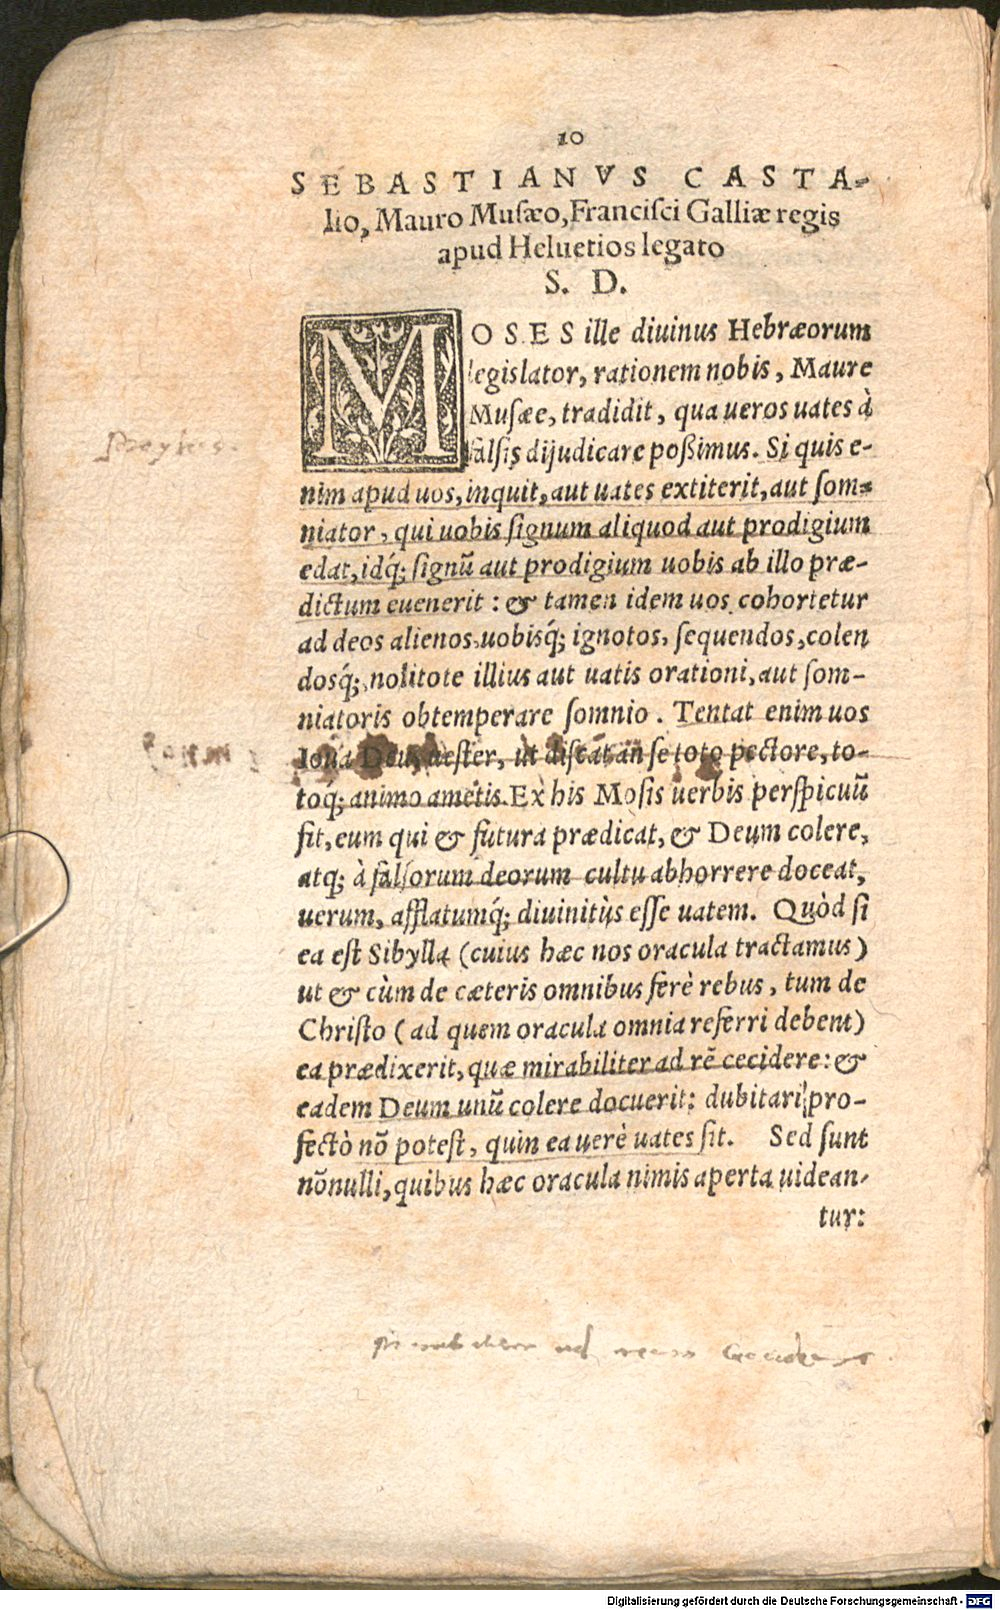 10
SEBASTIANVS CASTA-
lio, Mauro Musæo, Francisci Galliæ regis
apud Heluetios legato
S. D.
MOSES ille diuinus Hebræorum
legislator, rationem nobis, Maure
Musæe, tradidit, qua ueros uates à
falsis dijudicare poßimus. Si quis e-
nim apud uos, inquit, aut uates extiterit, aut som-
niator, qui uobis signum aliquod aut prodigium
edat, idq́; signũ aut prodigium uobis ab illo præ-
dictum euenerit : & tamen idem uos cohortetur
ad deos alienos, uobisq́; ignotos, sequendos, colen
dosq́;, nolitote illius aut uatis orationi, aut som-
niatoris obtemperare somnio. Tentat enim uos
Ioua Deus uester, ut discat an se toto pectore, to-
toq́; animo ametis. Ex his Mosis uerbis perspicuũ
fit, eum qui & futura prædicat, & Deum colere,
atq; à falsorum deorum cultu abhorrere doceat,
uerum, afflatumq́; diuinitùs esse uatem. Quòd si
ea est Sibylla (cuius hæc nos oracula tractamus)
ut & cùm de cæteris omnibus ferè rebus, tum de
Christo (ad quem oracula omnia referri debent)
ea prædixerit, quæ mirabiliter ad rẽ cecidere: &
eadem Deum unũ colere docuerit: dubitari pro-
fectò nõ potest, quin ea uerè uates sit. Sed sunt
nõnulli, quibus hæc oracula nimis aperta uidean-
tur:
ad rem
Digitalisierung gefördert durch die Deutsche Forschungsgemeinschaft - DFG